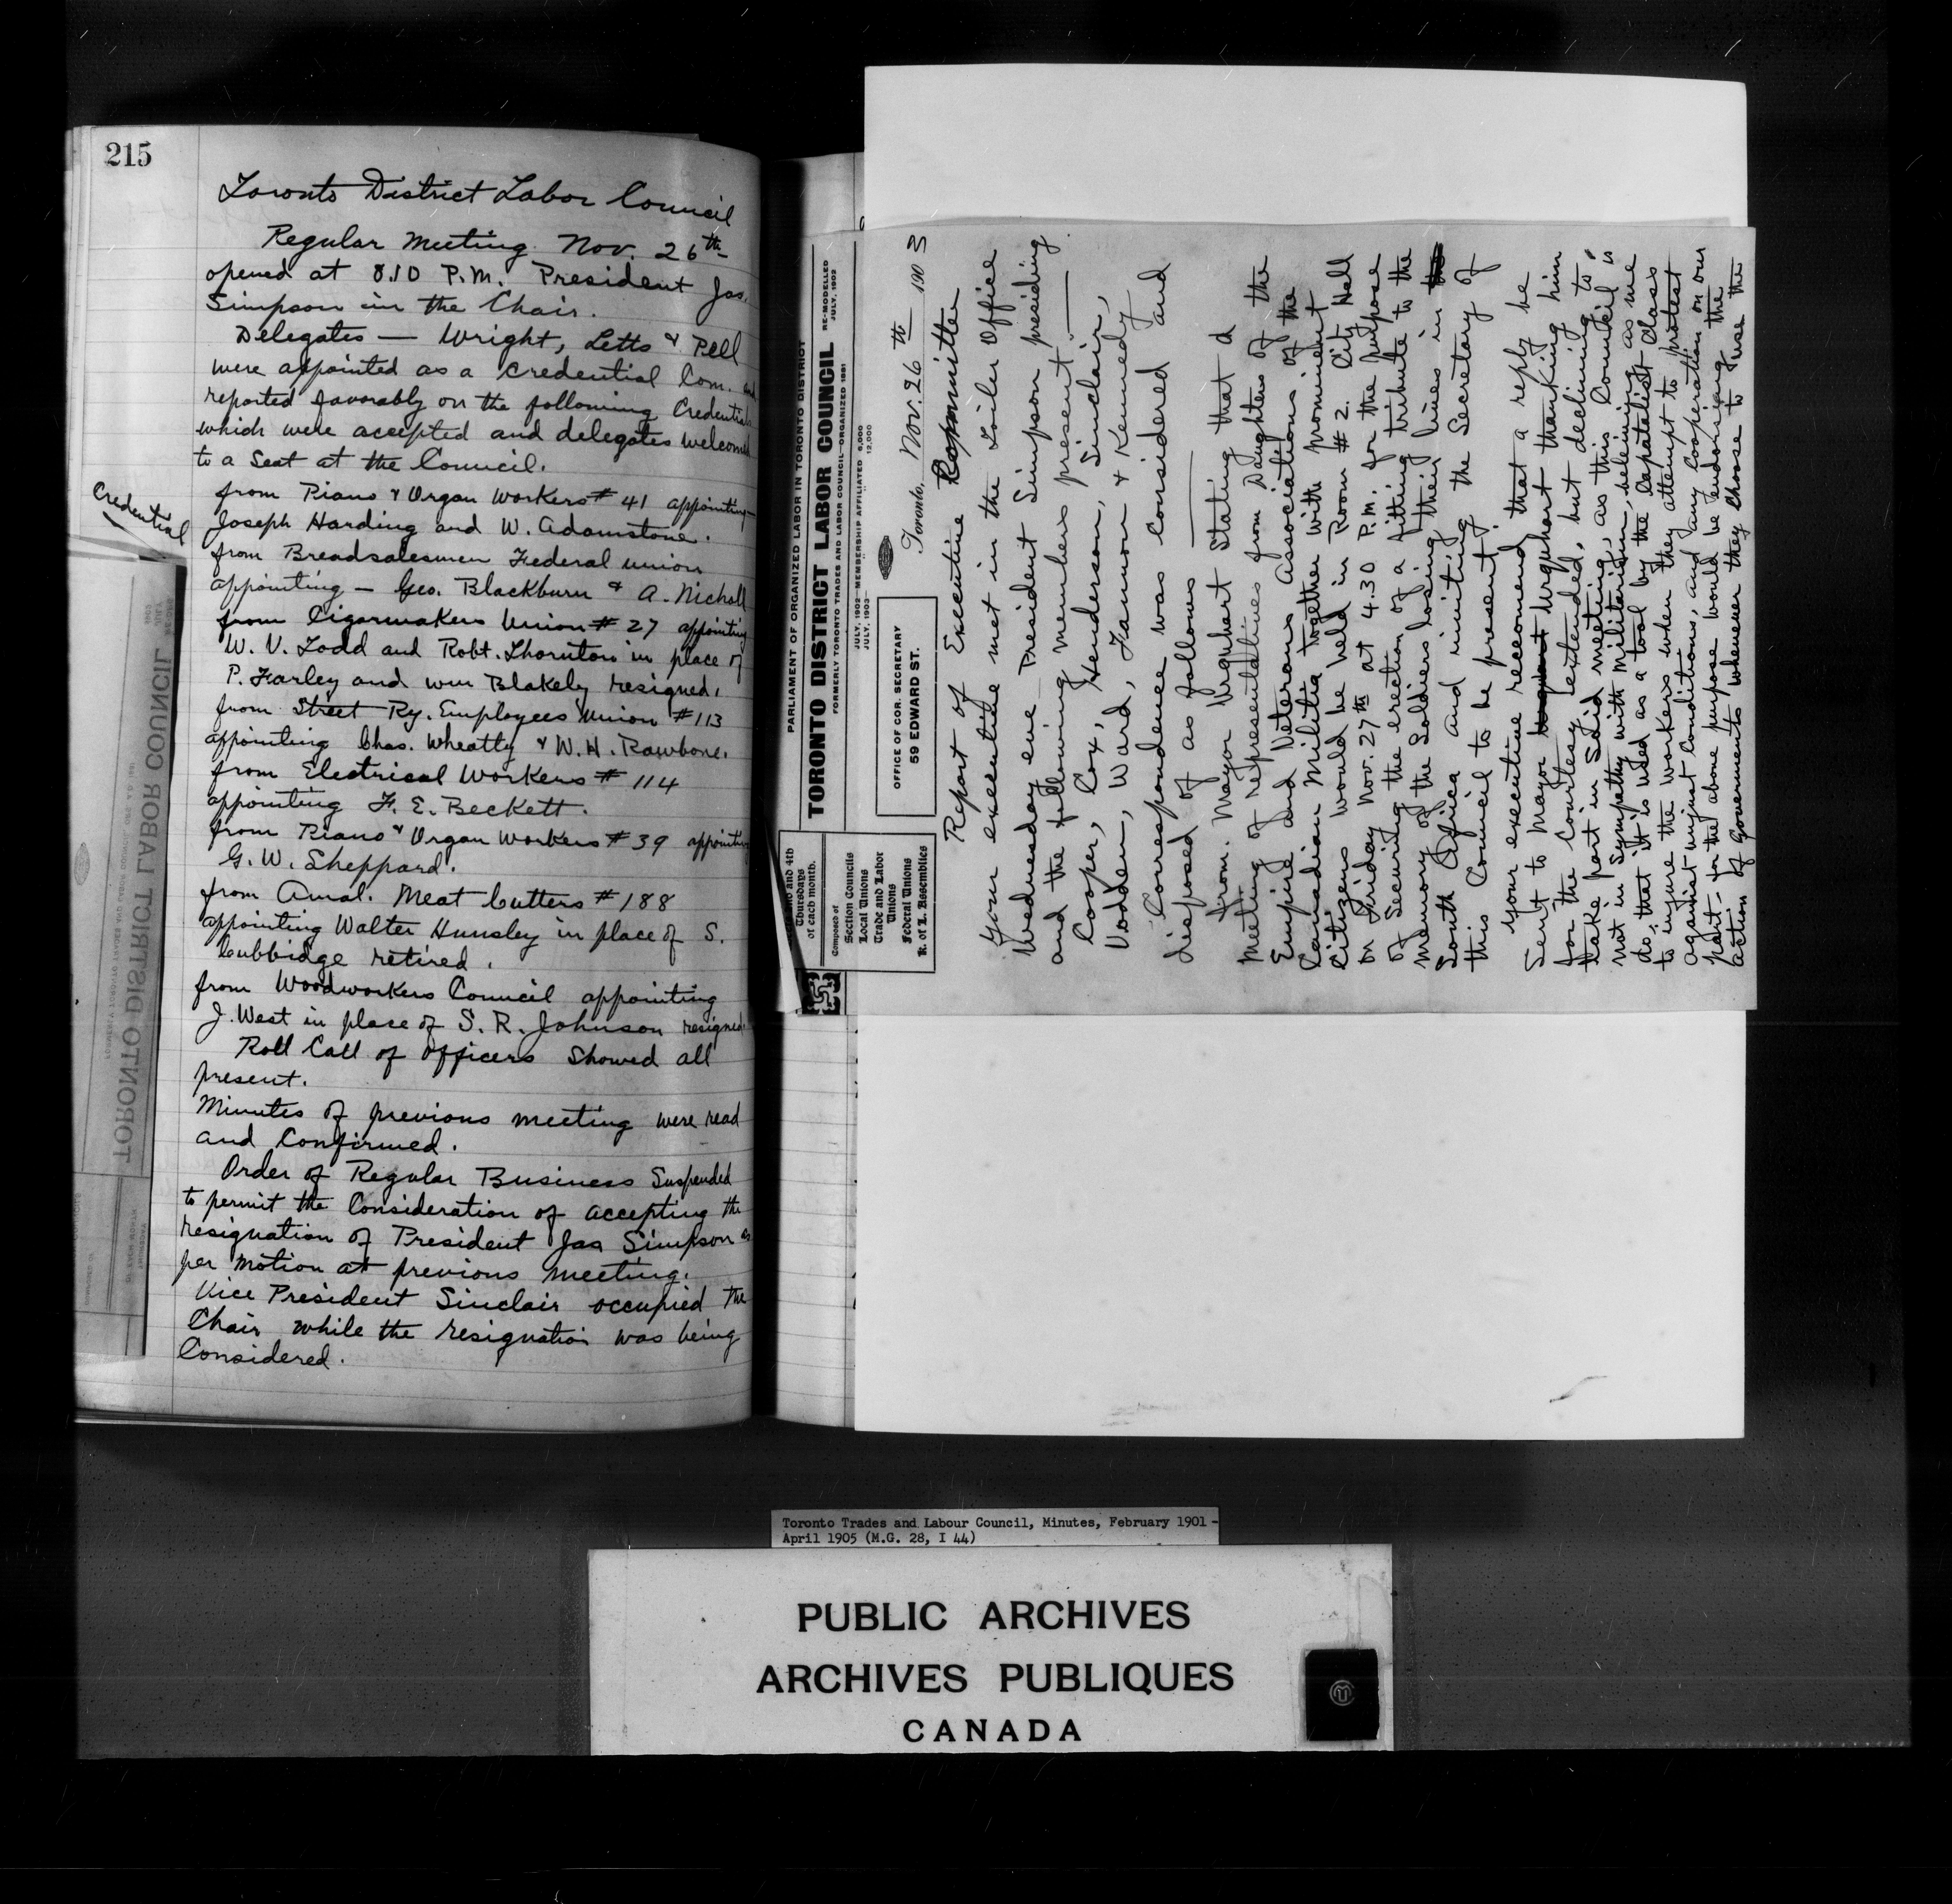 215
Toronto District Labor Council
Regular Meeting Nov. 26th
opened at 8.10 P.M. President Jas.
Simpson in the Chair.
Delegates — Wright, Letts & Pell
were appointed as a Credential Com. and
reported favorably on the following Credentials
which were accepted and delegates welcomed
to a Seat at the Council.
Credential
from Piano & Organ Workers # 41 appointing
Joseph Harding and W. Adamstone.
from Breadsalesmen Federal Union
appointing — Geo. Blackburn & A. Nicholl
from Cigarmakers Union # 27 appointing
W. V. Todd and Robt. Thornton in place of
P. Farley and Wm Blakely resigned.
from Street Ry. Employees Union # 113
appointing Chas. Wheatly & W. H. Rawbone.
from Electrical Workers # 114
appointing F. E. Beckett.
from Piano & Organ Workers # 39 appointing
G. W. Sheppard.
from Amal. Meat Cutters # 188
appointing Walter Hunsley in place of S.
Cubbidge retired.
from Woodworkers Council appointing
J. West in place of S. R. Johnson resigned.
Roll Call of Officers Showed all
present.
Minutes of previous meeting were read
and Confirmed.
Order of Regular Business Suspended
to permit the Consideration of accepting the
resignation of President Jas Simpson as
per motion at previous meeting.
Vice President Sinclair occupied the
Chair while the resignation was being
Considered.
TORONTO DISTRICT LABOR COUNCIL
PARLIAMENT OF ORGANIZED LABOR IN TORONTO DISTRICT
TORONTO DISTRICT LABOR COUNCIL
RE-MODELLED
JULY, 1902
FORMERLY TORONTO TRADES AND LABOR COUNCIL—ORGANIZED 1881
JULY, 1902—MEMBERSHIP AFFILIATED 5,000
JULY, 1903— 12,000
and 4th
Thursdays
of each month.
Composed of
Section Councils
Local Unions
Trade and Labor
Unions
Federal Unions
K. of L. Assemblies
OFFICE OF COR. SECRETARY
59 EDWARD ST.
Toronto, Nov. 26th 1903
Report of Executive Committee
Your executive met in the Toiler Office
Wednesday eve — President Simpson presiding
and the following members present. —
Cooper, Cox, Henderson, Sinclair,
Vodden, Ward, Gannon & Kennedy
Correspondence was Considered and
disposed of as follows —
From. Mayor Urquhart Stating that a
meeting of representatives from Daughters of the
Empire and Veterans Associations of the
Canadian Militia together with prominent
Citizens would be held in Room # 2. City Hall
on Friday Nov. 27th at 4.30 P.M. for the purpose
of Securing the erection of a fitting tribute to the
memory of the Soldiers losing their lives in the
South Africa and inviting the Secretary of
this Council to be present.
Your executive recommend that a reply be
Sent to Mayor Urquhart thanking him
for the Courtesy extended, but declining to
take part in Said meeting, as this Council is
not in Sympathy with Militarism, believing as we
do, that it is used as a tool by the Capatalist Class
to injure the workers when they attempt to protest
against unjust Conditions, and any Cooperation on our
part for the above purpose would be endorsing the
action of Governments whenever they Choose to use the
Toronto Trades and Labour Council, Minutes, February 1901 -
April 1905 (M.G. 28, I 44)
PUBLIC ARCHIVES
ARCHIVES PUBLIQUES
CANADA